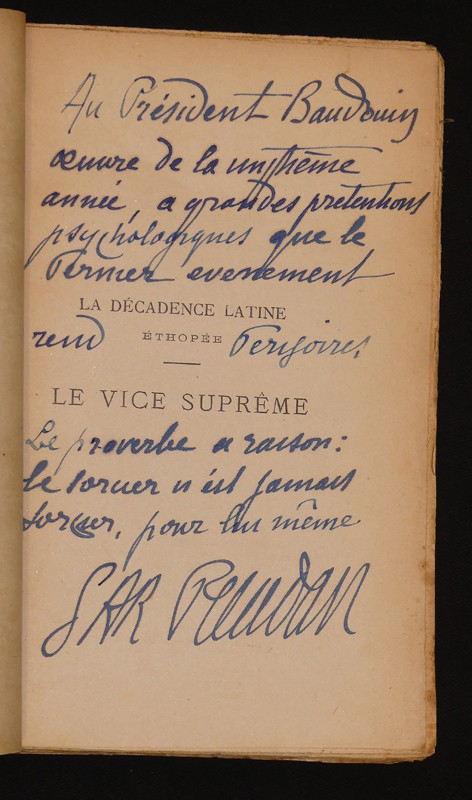 Au Président Baudouin
œuvre de la
année, a grandes pretentions
psychologiques que le
evenement
LA DÉCADENCE LATINE
rend ÉTHOPÉE
LE VICE SUPRÊME
Le proverbe a raison:
le sorcier n'est jamais
sorcier, pour lui même
SAR Peladan